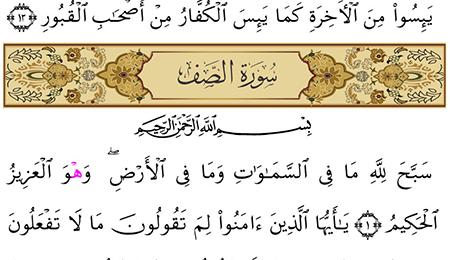 يَئِسُوا۟ مِنَ ٱلْـَٔاخِرَةِ كَمَا يَئِسَ ٱلْكُفَّارُ مِنْ أَصْحَـٰبِ ٱلْقُبُورِ ﴿١٣﴾
سُورَةُ الصَّفِّ
بِسْمِ ٱللَّهِ ٱلرَّحْمَـٰنِ ٱلرَّحِيمِ
سَبَّحَ لِلَّهِ مَا فِى ٱلسَّمَـٰوَٰتِ وَمَا فِى ٱلْأَرْضِ ۖ وَهُوَ ٱلْعَزِيزُ
ٱلْحَكِيمُ ﴿١﴾ يَـٰٓأَيُّهَا ٱلَّذِينَ ءَامَنُوا۟ لِمَ تَقُولُونَ مَا لَا تَفْعَلُونَ